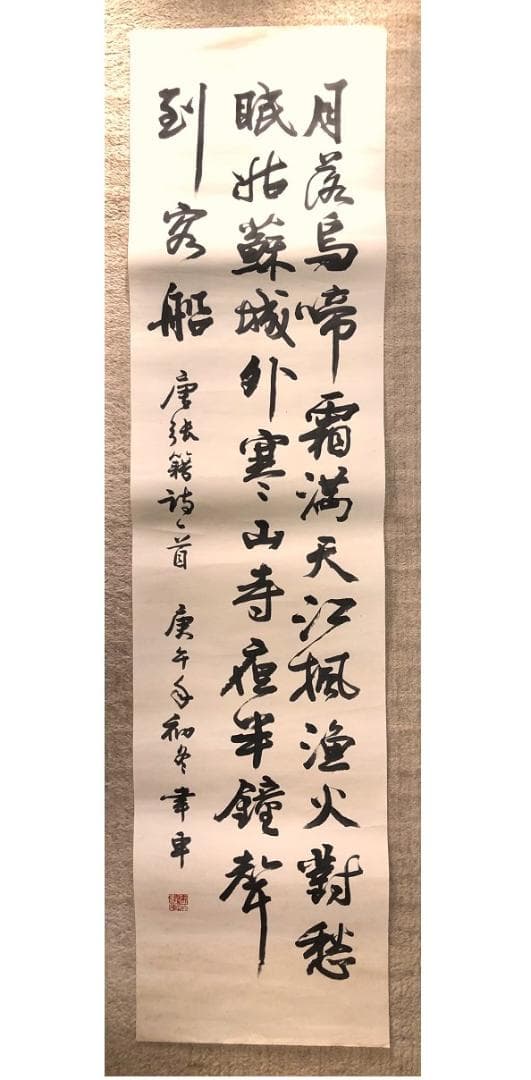 月落烏啼霜滿天江楓漁火對愁
眠姑蘇城外寒山寺夜半鐘聲
到客船 唐張籍詩一首 庚午年初冬